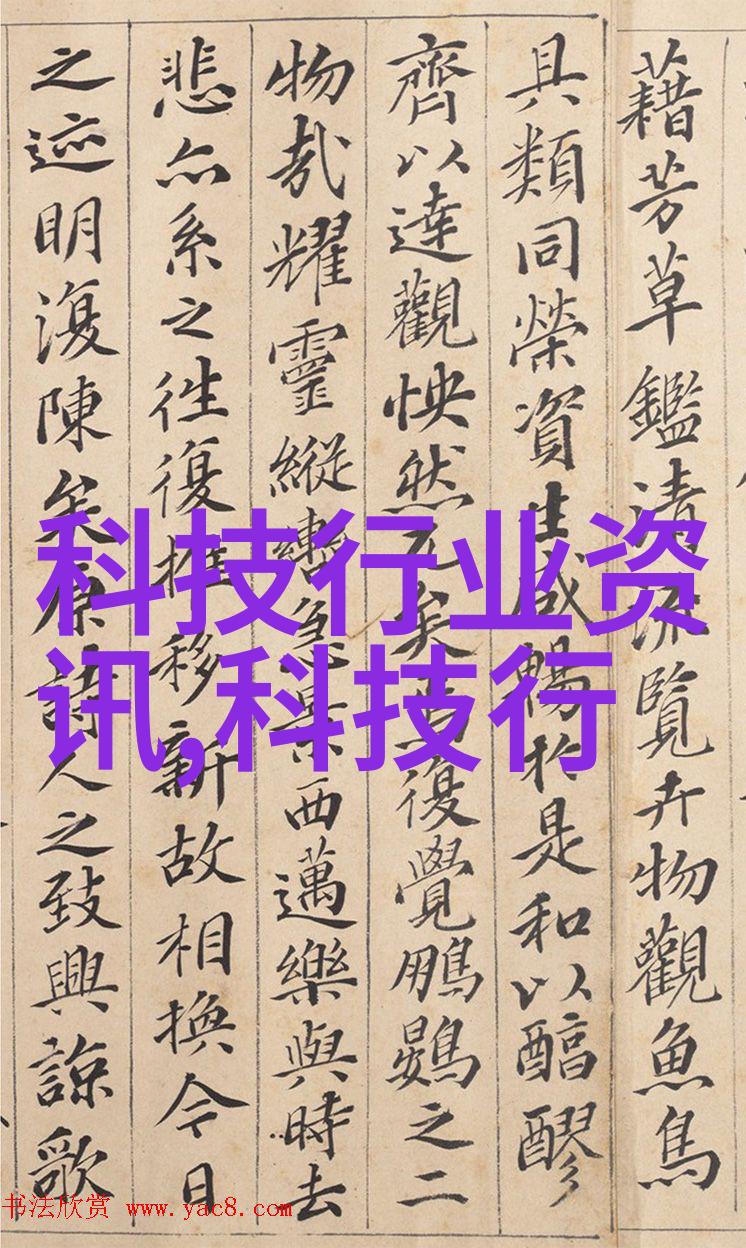 藉芳草鑑清流覽卉物觀魚鳥
具類同榮資生咸暢於是和以醕醪
齊以達觀怏然兀矣焉復覺鵬鷃之二
物哉耀靈縱轡急景西邁樂與時去
悲亦系之往復推移新故相換今日
之迹明復陳矣原詩人之致興諒歌
科技行业资
讯,科技行
书法欣赏 www.yac8.com